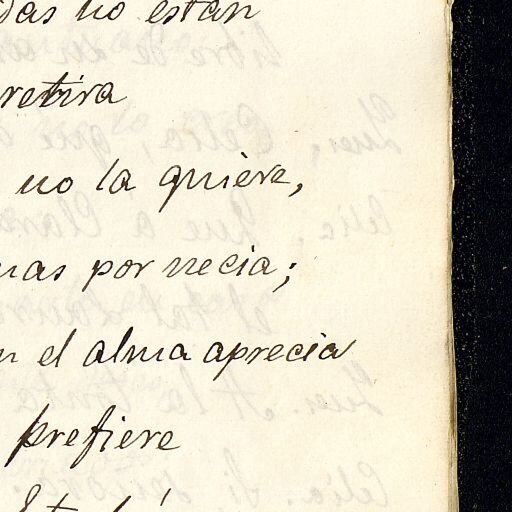 no están
retira
no la quiere,
por necia;
el alma aprecia
prefiere